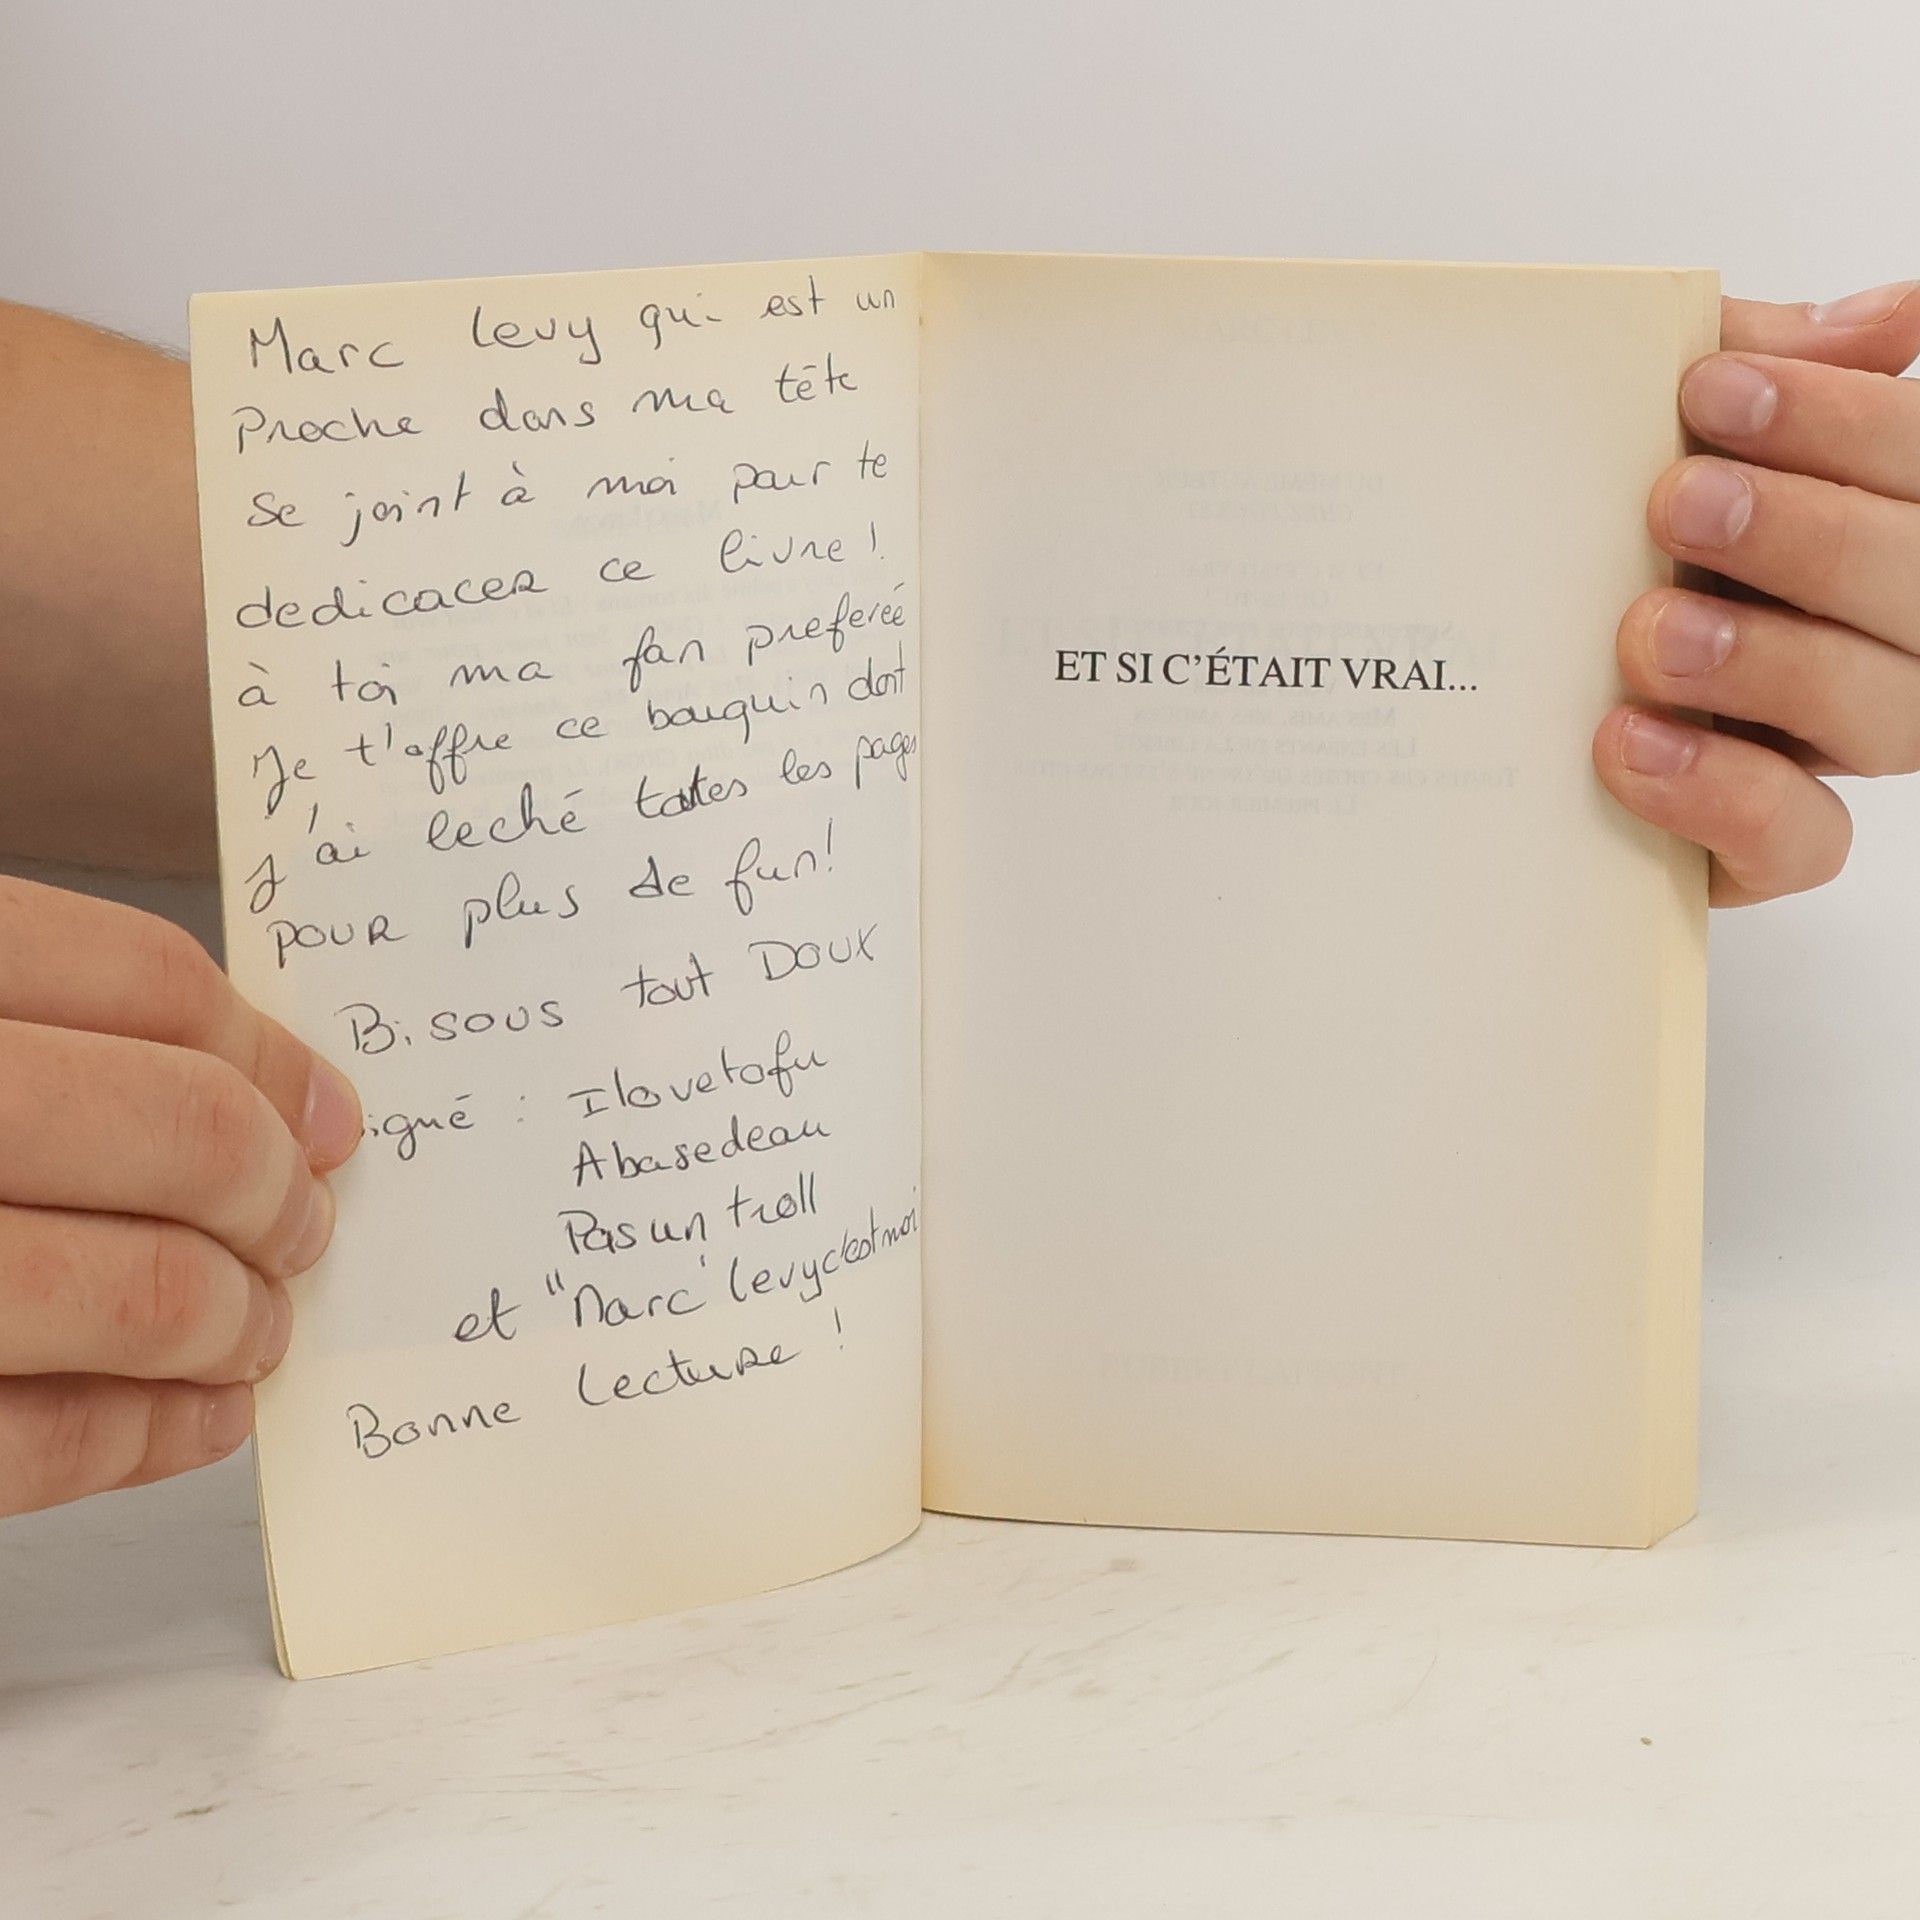 Marc Levy qui est un
Proche dans ma tête
se joint à moi pour te
dedicacer ce livre !
à toi ma fan preferée
Je t'offre ce bouquin dont
j'ai leché toutes les pages
POUR plus de fun!
Bisous tout DOUX
signé : Ilovetofu
Abasedeau
Pas un troll
et "Marc" levyc'est moi
Bonne Lecture !
ET SI C'ÉTAIT VRAI...